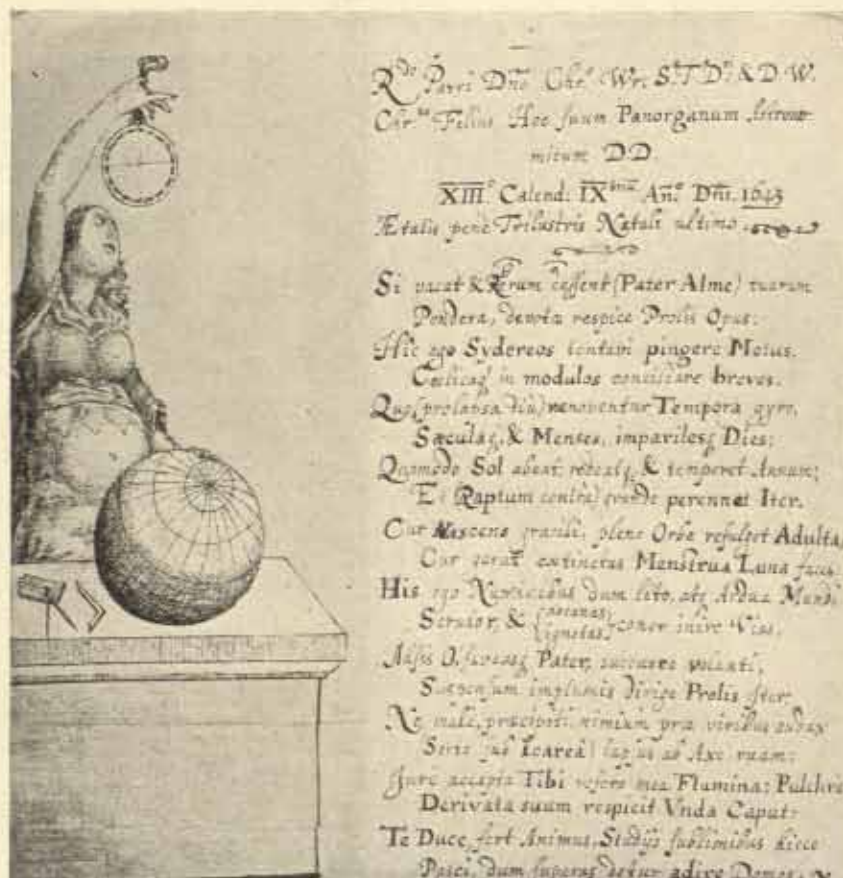 R.do Patri Dño Chr. Wr. S.T.D. & D.W.
Chr. Filius Hoc suum Panorganum Astrono-
micum DD.
XIII.o Calend: IX Añ.o Dñi. 1645
Ætatis pene Trilustris Natali ultimo.
Si vacat & Rerum cessent (Pater Alme) tuarum
Pondera, devotæ respice Prolis Opus:
Hic ego Sydereos tentavi pingere Motus,
Cœlicaq; in modulos conciliare breves.
Quo (prolapsa diu) renoventur Tempora gyro,
Sæculaq;, & Menses, imparilesq; Dies;
Quomodo Sol abeat, redeatq; & temperet Annum;
Et Raptum contra grande perennet Iter.
Cur Nascens gracili, pleno Orbe refulget Adulta,
Cur gerat extinctas Menstrua Luna faces.
His ego Numinibus dum lito, atq; Ardua Mundi
Scrutor, & {arcanas ignotas} conor inire Vias,
Adsis O, faveasq; Pater, succurre volanti,
Suspensum implumis dirige Prolis Iter.
Ne male, præcipiti, nimium præ viribus audax
sub Icarea) lapsus ab Axe ruam:
Jure accepta Tibi refero mea Flumina: Pulchre
Derivata suum respicit Vnda Caput:
Te Duce, fert Animus, Studijs sublimibus hisce
Pasci, dum superas detur adire Domos.